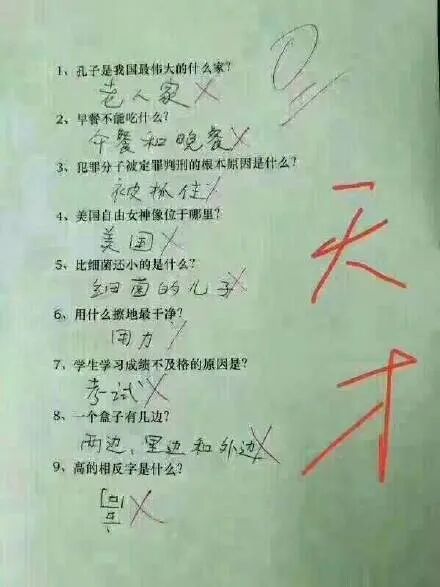 1、孔子是我国最伟大的什么家?
老人家
2、早餐不能吃什么?
午餐和晚餐
3、犯罪分子被定罪判刑的根本原因是什么?
被抓住
4、美国自由女神像位于哪里?
美国
5、比细菌还小的是什么?
细菌的儿子
6、用什么擦地最干净?
用力
7、学生学习成绩不及格的原因是?
考试
8、一个盒子有几边?
两边、里边和外边
9、高的相反字是什么?
0
天才